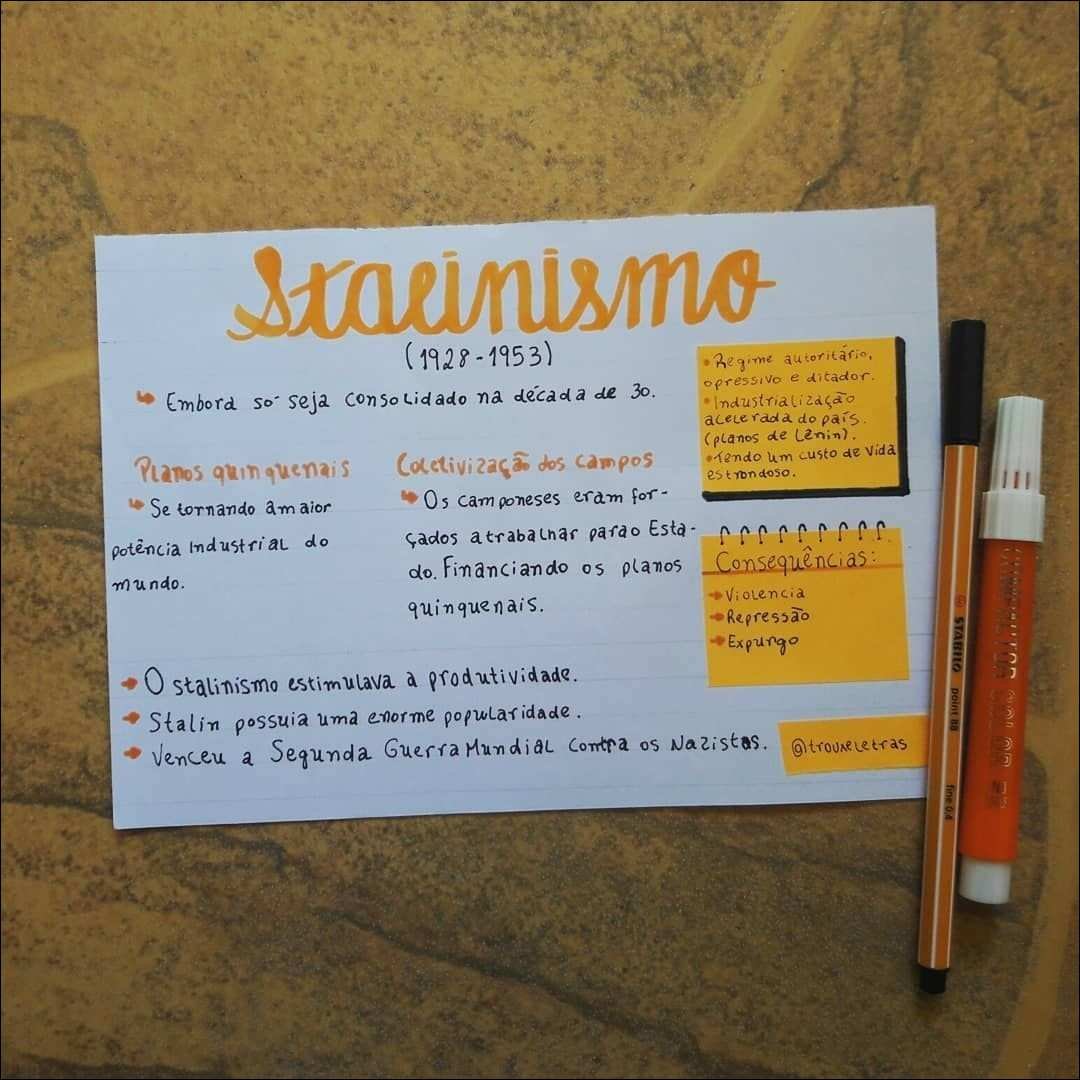 Stalinismo
(1928-1953)
Embora só seja consolidado na década de 30.
Planos quinquenais
Se tornando a maior
potência industrial do
mundo.
Coletivização dos campos
Os camponeses eram for-
çados a trabalhar para o Esta-
do. Financiando os planos
quinquenais.
• Regime autoritário,
opressivo e ditador.
• Industrialização
acelerada do país.
(planos de Lênin).
• Tendo um custo de vida
estrondoso.
Consequências:
Violencia
Repressão
Expurgo
O stalinismo estimulava a produtividade.
Stalin possuia uma enorme popularidade.
Venceu a Segunda Guerra Mundial contra os Nazistas.
@trouxeletras
STABILO point 88 fine 0,4